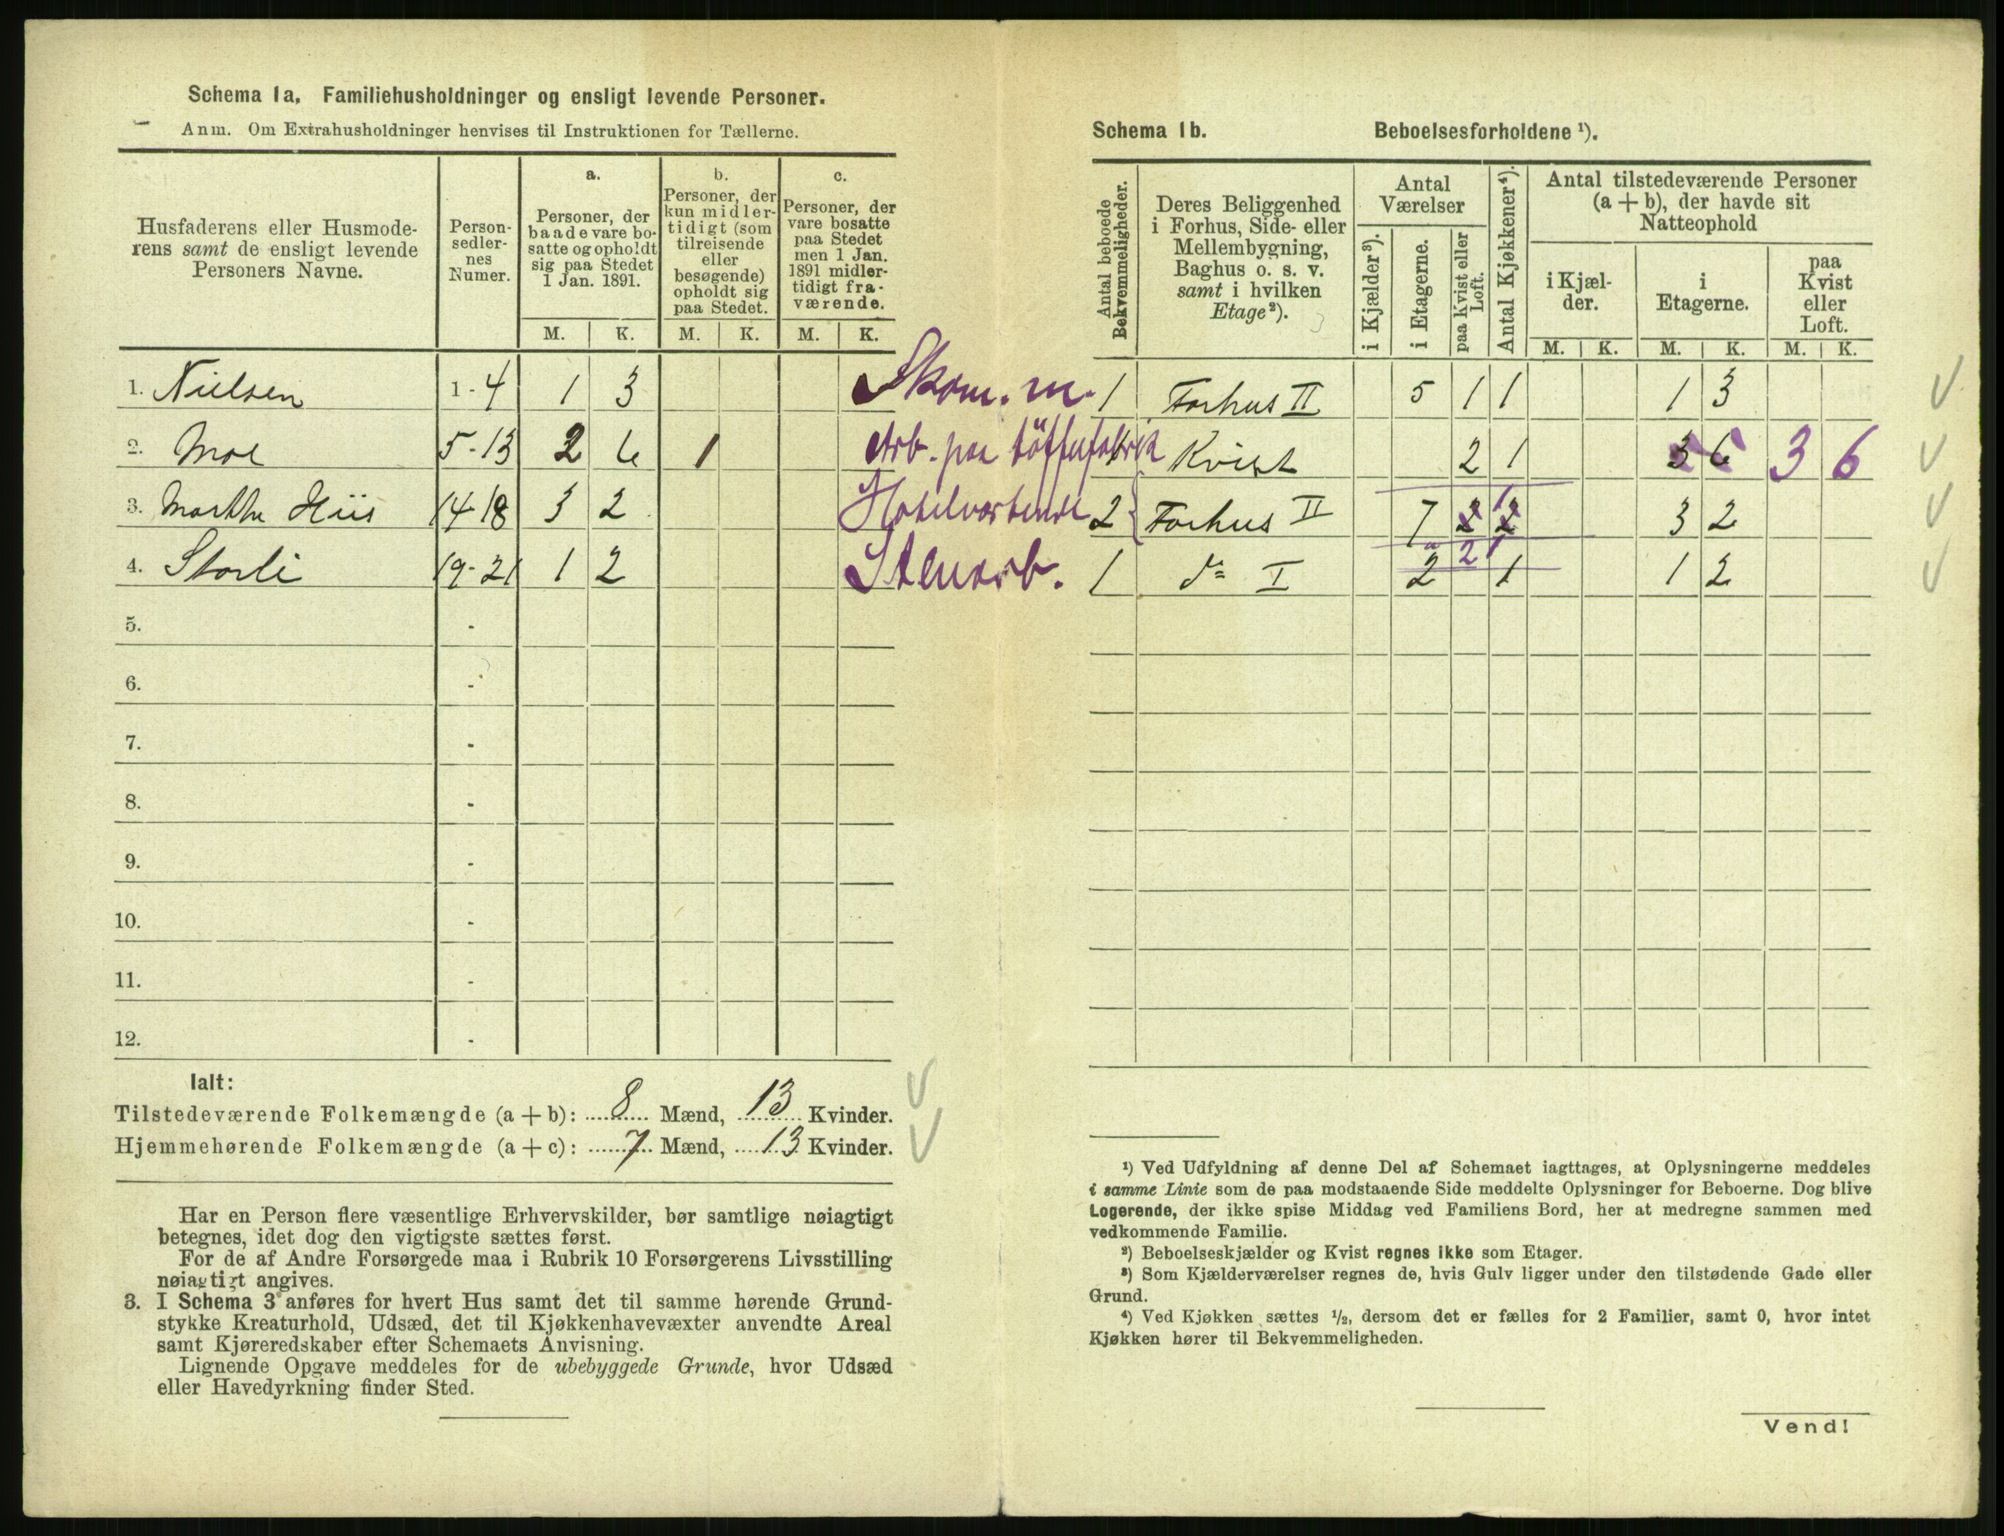 Schema 1a. Familiehusholdninger og ensligt levende Personer.
Anm. Om Extrahusholdninger henvises til Instruktionen for Tællerne.
Husfaderens eller Husmoderens samt de ensligt levende Personers Navne.
Personsedlernes Numer.
a. Personer, der baade vare bosatte og opholdt sig paa Stedet 1 Jan. 1891.
b. Personer, der kun midlertidigt (som tilreisende eller besøgende) opholdt sig paa Stedet.
c. Personer, der vare bosatte paa Stedet men 1 Jan. 1891 midlertidigt fraværende.
M. K. M. K. M. K.
1. Nielsen 1-4 1 3 Skom. m.
2. Moe 5-13 2 6 1 Arb. paa töffelfabrik
3. Marthe Hiis 14-18 3 2 Hotelvartende
4. Storli 19-21 1 2 Stenarb.
5. -
6. -
7. -
8. -
9. -
10. -
11. -
12. -
Ialt:
Tilstedeværende Folkemængde (a + b): 8 Mænd, 13 Kvinder.
Hjemmehørende Folkemængde (a + c): 7 Mænd, 13 Kvinder.
Har en Person flere væsentlige Erhvervskilder, bør samtlige nøiagtigt
betegnes, idet dog den vigtigste sættes først.
For de af Andre Forsørgede maa i Rubrik 10 Forsørgerens Livsstilling
nøiagtigt angives.
3. I Schema 3 anføres for hvert Hus samt det til samme hørende Grund-
stykke Kreaturhold, Udsæd, det til Kjøkkenhavevæxter anvendte Areal
samt Kjøreredskaber efter Schemaets Anvisning.
Lignende Opgave meddeles for de ubebyggede Grunde, hvor Udsæd
eller Havedyrkning finder Sted.
Schema 1b. Beboelsesforholdene ¹).
Antal beboede Bekvemmeligheder.
Deres Beliggenhed i Forhus, Side- eller Mellembygning, Baghus o. s. v. samt i hvilken Etage²).
Antal Værelser
i Kjælder³).
i Etagerne.
paa Kvist eller Loft.
Antal Kjøkkener⁴).
Antal tilstedeværende Personer (a + b), der havde sit Natteophold
i Kjælder.
i Etagerne.
paa Kvist eller Loft.
M. K. M. K. M. K.
1 Forhus II 5 1 1 1 3
1 Kvist 2 1 3 6 3 6
2 Forhus II 7 2 2 1 3 2
2 1
1 do I 2 1 1 2
¹) Ved Udfyldning af denne Del af Schemaet iagttages, at Oplysningerne meddeles
i samme Linie som de paa modstaaende Side meddelte Oplysninger for Beboerne. Dog blive
Logerende, der ikke spise Middag ved Familiens Bord, her at medregne sammen med
vedkommende Familie.
²) Beboelseskjælder og Kvist regnes ikke som Etager.
³) Som Kjælderværelser regnes de, hvis Gulv ligger under den tilstødende Gade eller
Grund.
⁴) Ved Kjøkken sættes ½, dersom det er fælles for 2 Familier, samt 0, hvor intet
Kjøkken hører til Bekvemmeligheden.
Vend!